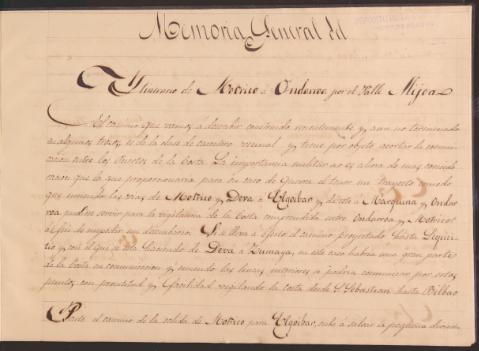 Memoria General del
Ytinerario de Motrico á Ondarroa por el Valle Mijoa
El camino que vamos á describir construido recientemente y aun no terminado
en algunos trozos es de la clase de carretero vecinal y tiene por objeto acortar la comuni
cacion entre los Puertos de la Costa. La importancia militar no es ahora de mas conside
racion que la que proporcionaria para en caso de guerra el tener un trayecto
que uniendo las vias de Motrico y Deva á Elgoibar y de esta á Marquina y Ondar
roa puedan servir para la vigilancia de la Costa comprendida entre Ondarroa y Motrico
á fin de impedir un desembarco. Si se lleva á efecto el camino proyectado hasta Lequei
tio y con el que se esta haciendo de Deva á Zumaya, en este caso habria una gran parte
de la Costa en comunicacion y uniendo las lineas interiores se podria comunicar por estos
puntos con prontitud y facilidad vigilando la costa desde S. Sebastian hasta Bilbao
Parte el camino de la salida de Motrico para Elgoibar, sube á salvar la pequeña divisoria